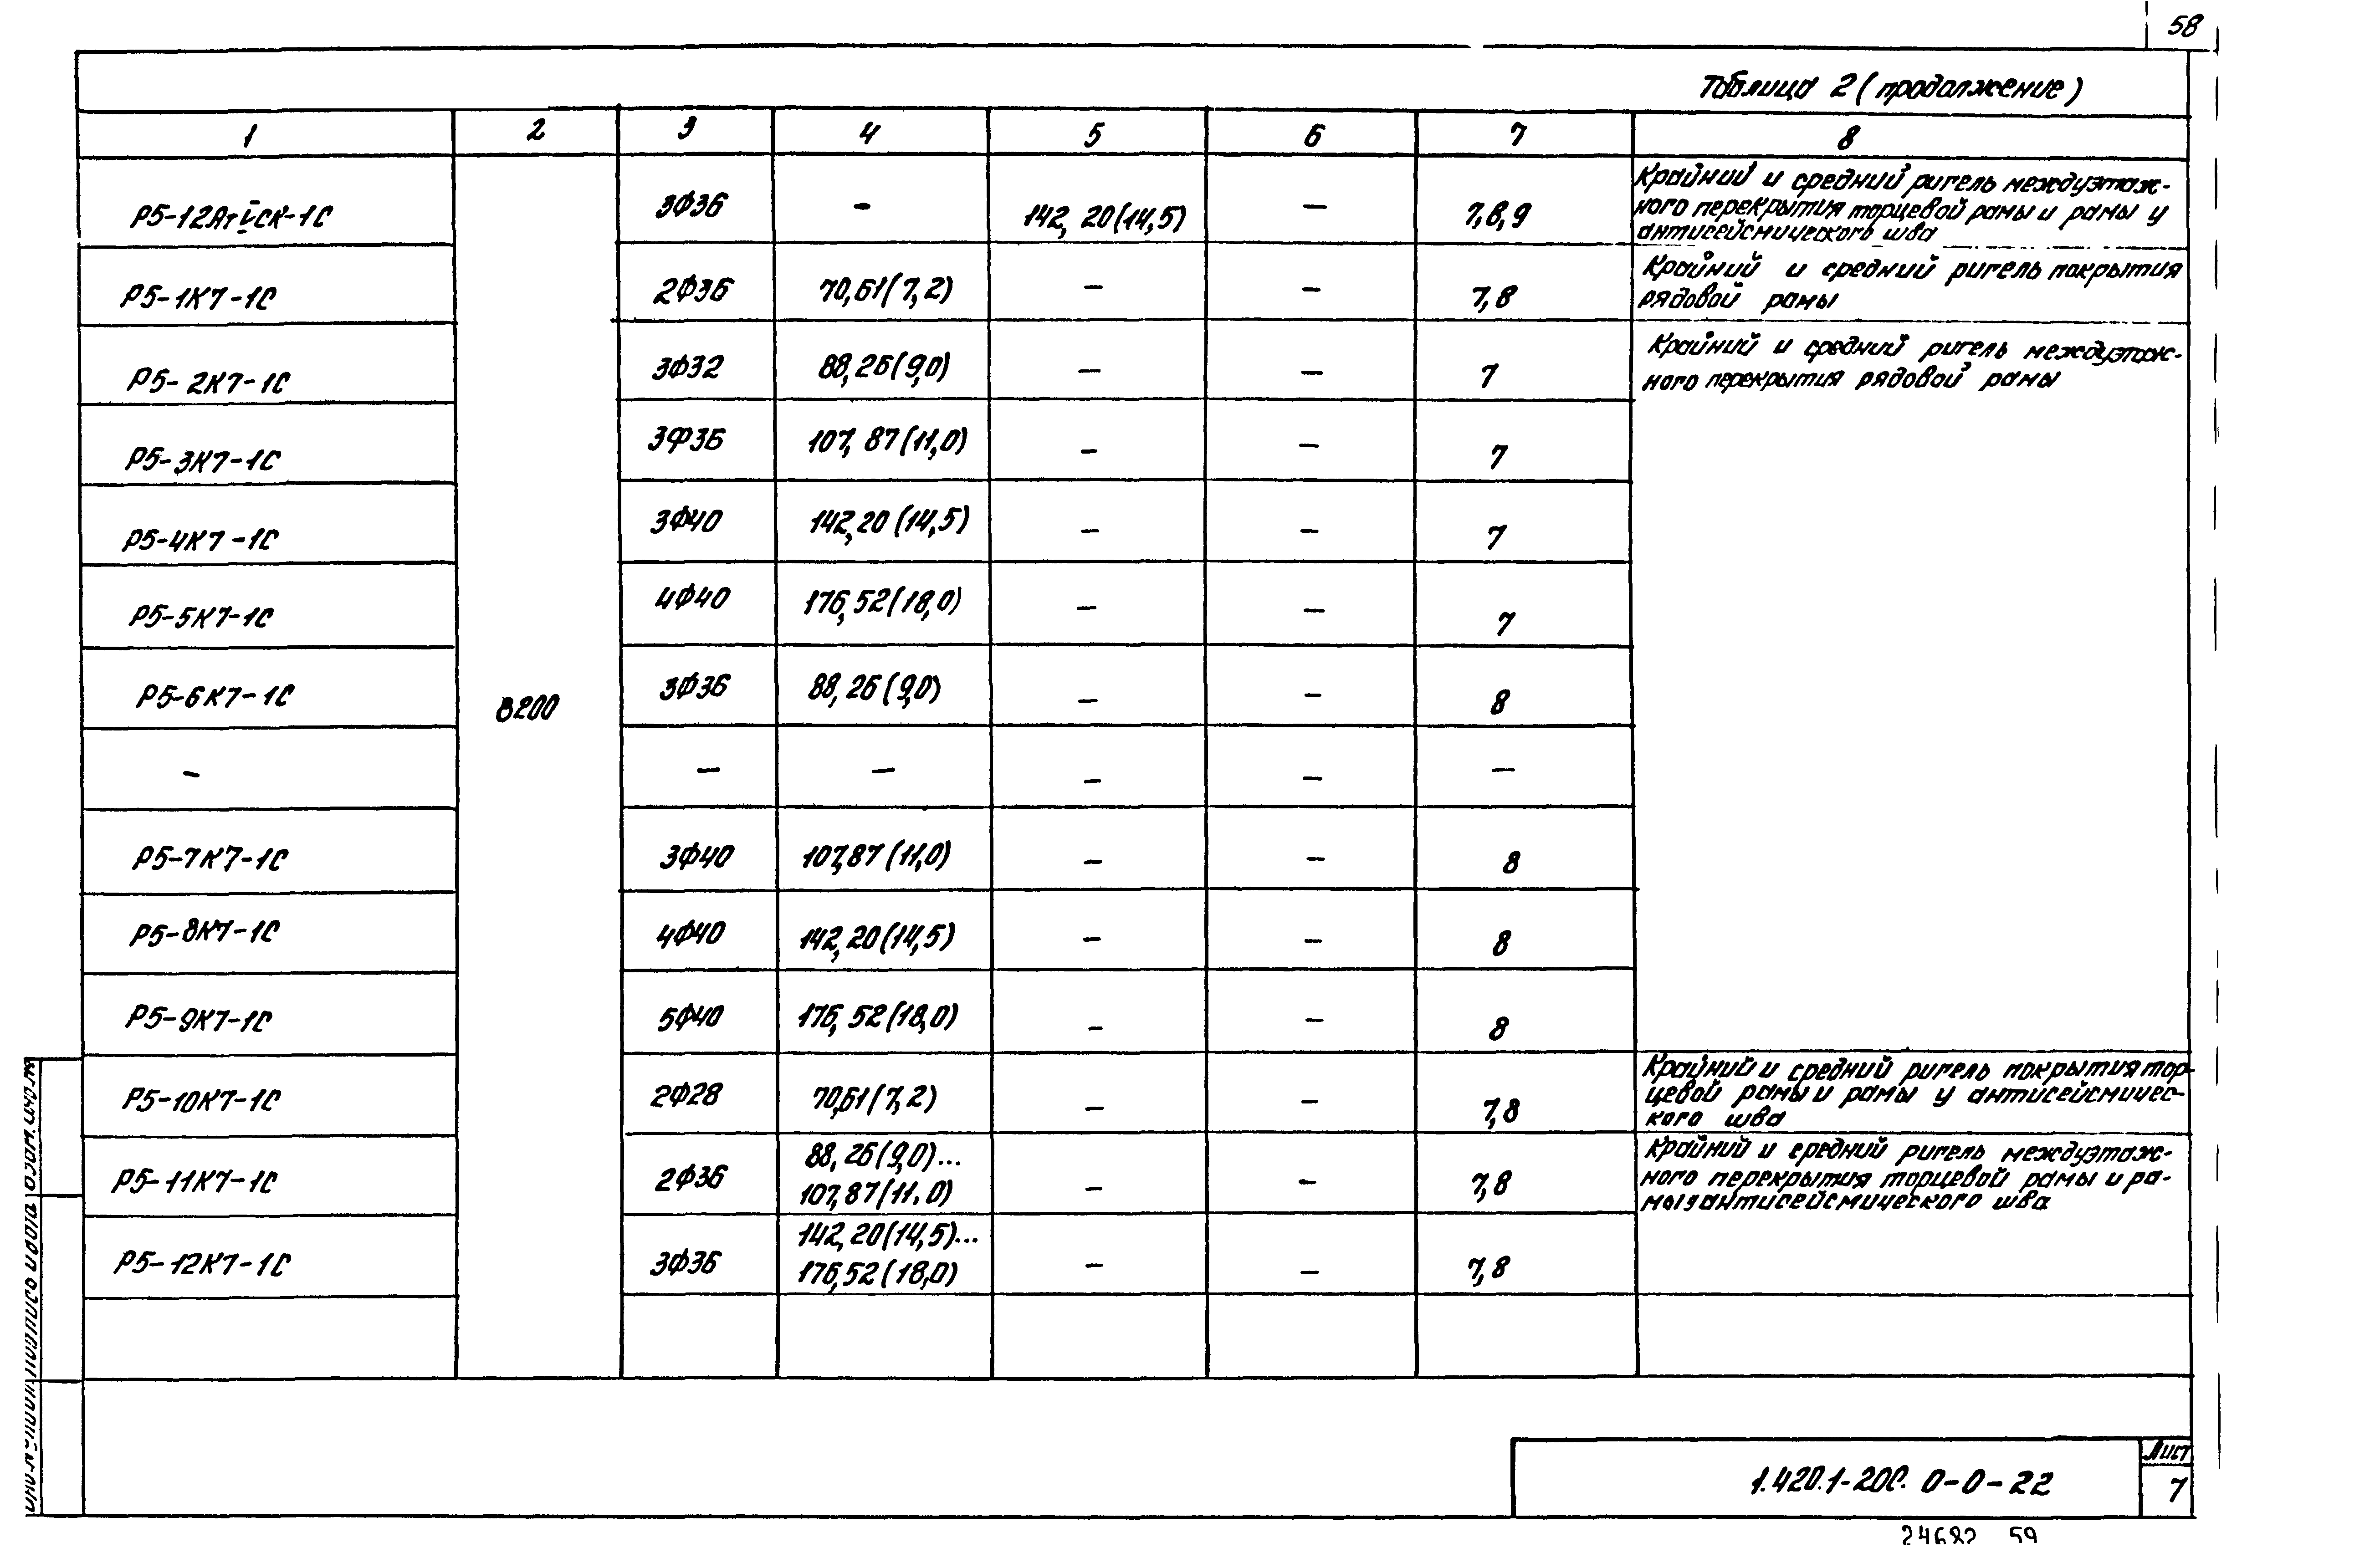 58
Таблица 2 (продолжение)
1 2 3 4 5 6 7 8
Р5-12АтVСК-1С 3Ф36 - 142,20(14,5) - 7,8,9
Крайний и средний ригель междуэтаж-
ного перекрытия торцевой рамы и рамы у
антисейсмического шва
Р5-1К7-1С 2Ф36 70,61(7,2) - - 7,8
Крайний и средний ригель покрытия
рядовой рамы
Р5-2К7-1С 3Ф32 88,26(9,0) - - 7
Крайний и средний ригель междуэтаж-
ного перекрытия рядовой рамы
Р5-3К7-1С 3Ф36 107,87(11,0) - - 7
Р5-4К7-1С 3Ф40 142,20(14,5) - - 7
Р5-5К7-1С 4Ф40 176,52(18,0) - - 7
Р5-6К7-1С 8200 3Ф36 88,26(9,0) - - 8
- - - - - -
Р5-7К7-1С 3Ф40 107,87(11,0) - - 8
Р5-8К7-1С 4Ф40 142,20(14,5) - - 8
Р5-9К7-1С 5Ф40 176,52(18,0) - - 8
Р5-10К7-1С 2Ф28 70,61(7,2) - - 7,8
Крайний и средний ригель покрытия тор-
цевой рамы и рамы у антисейсмичес-
кого шва
Р5-11К7-1С 2Ф36 88,26(9,0)...
107,87(11,0) - - 7,8
Крайний и средний ригель междуэтаж-
ного перекрытия торцевой рамы и ра-
мы у антисейсмического шва
Р5-12К7-1С 3Ф36 142,20(14,5)...
176,52(18,0) - - 7,8
Взам. инв. №
Подпись и дата
Инв. № подл.
1.420.1-20С. 0-0-22
Лист
7
24682 59